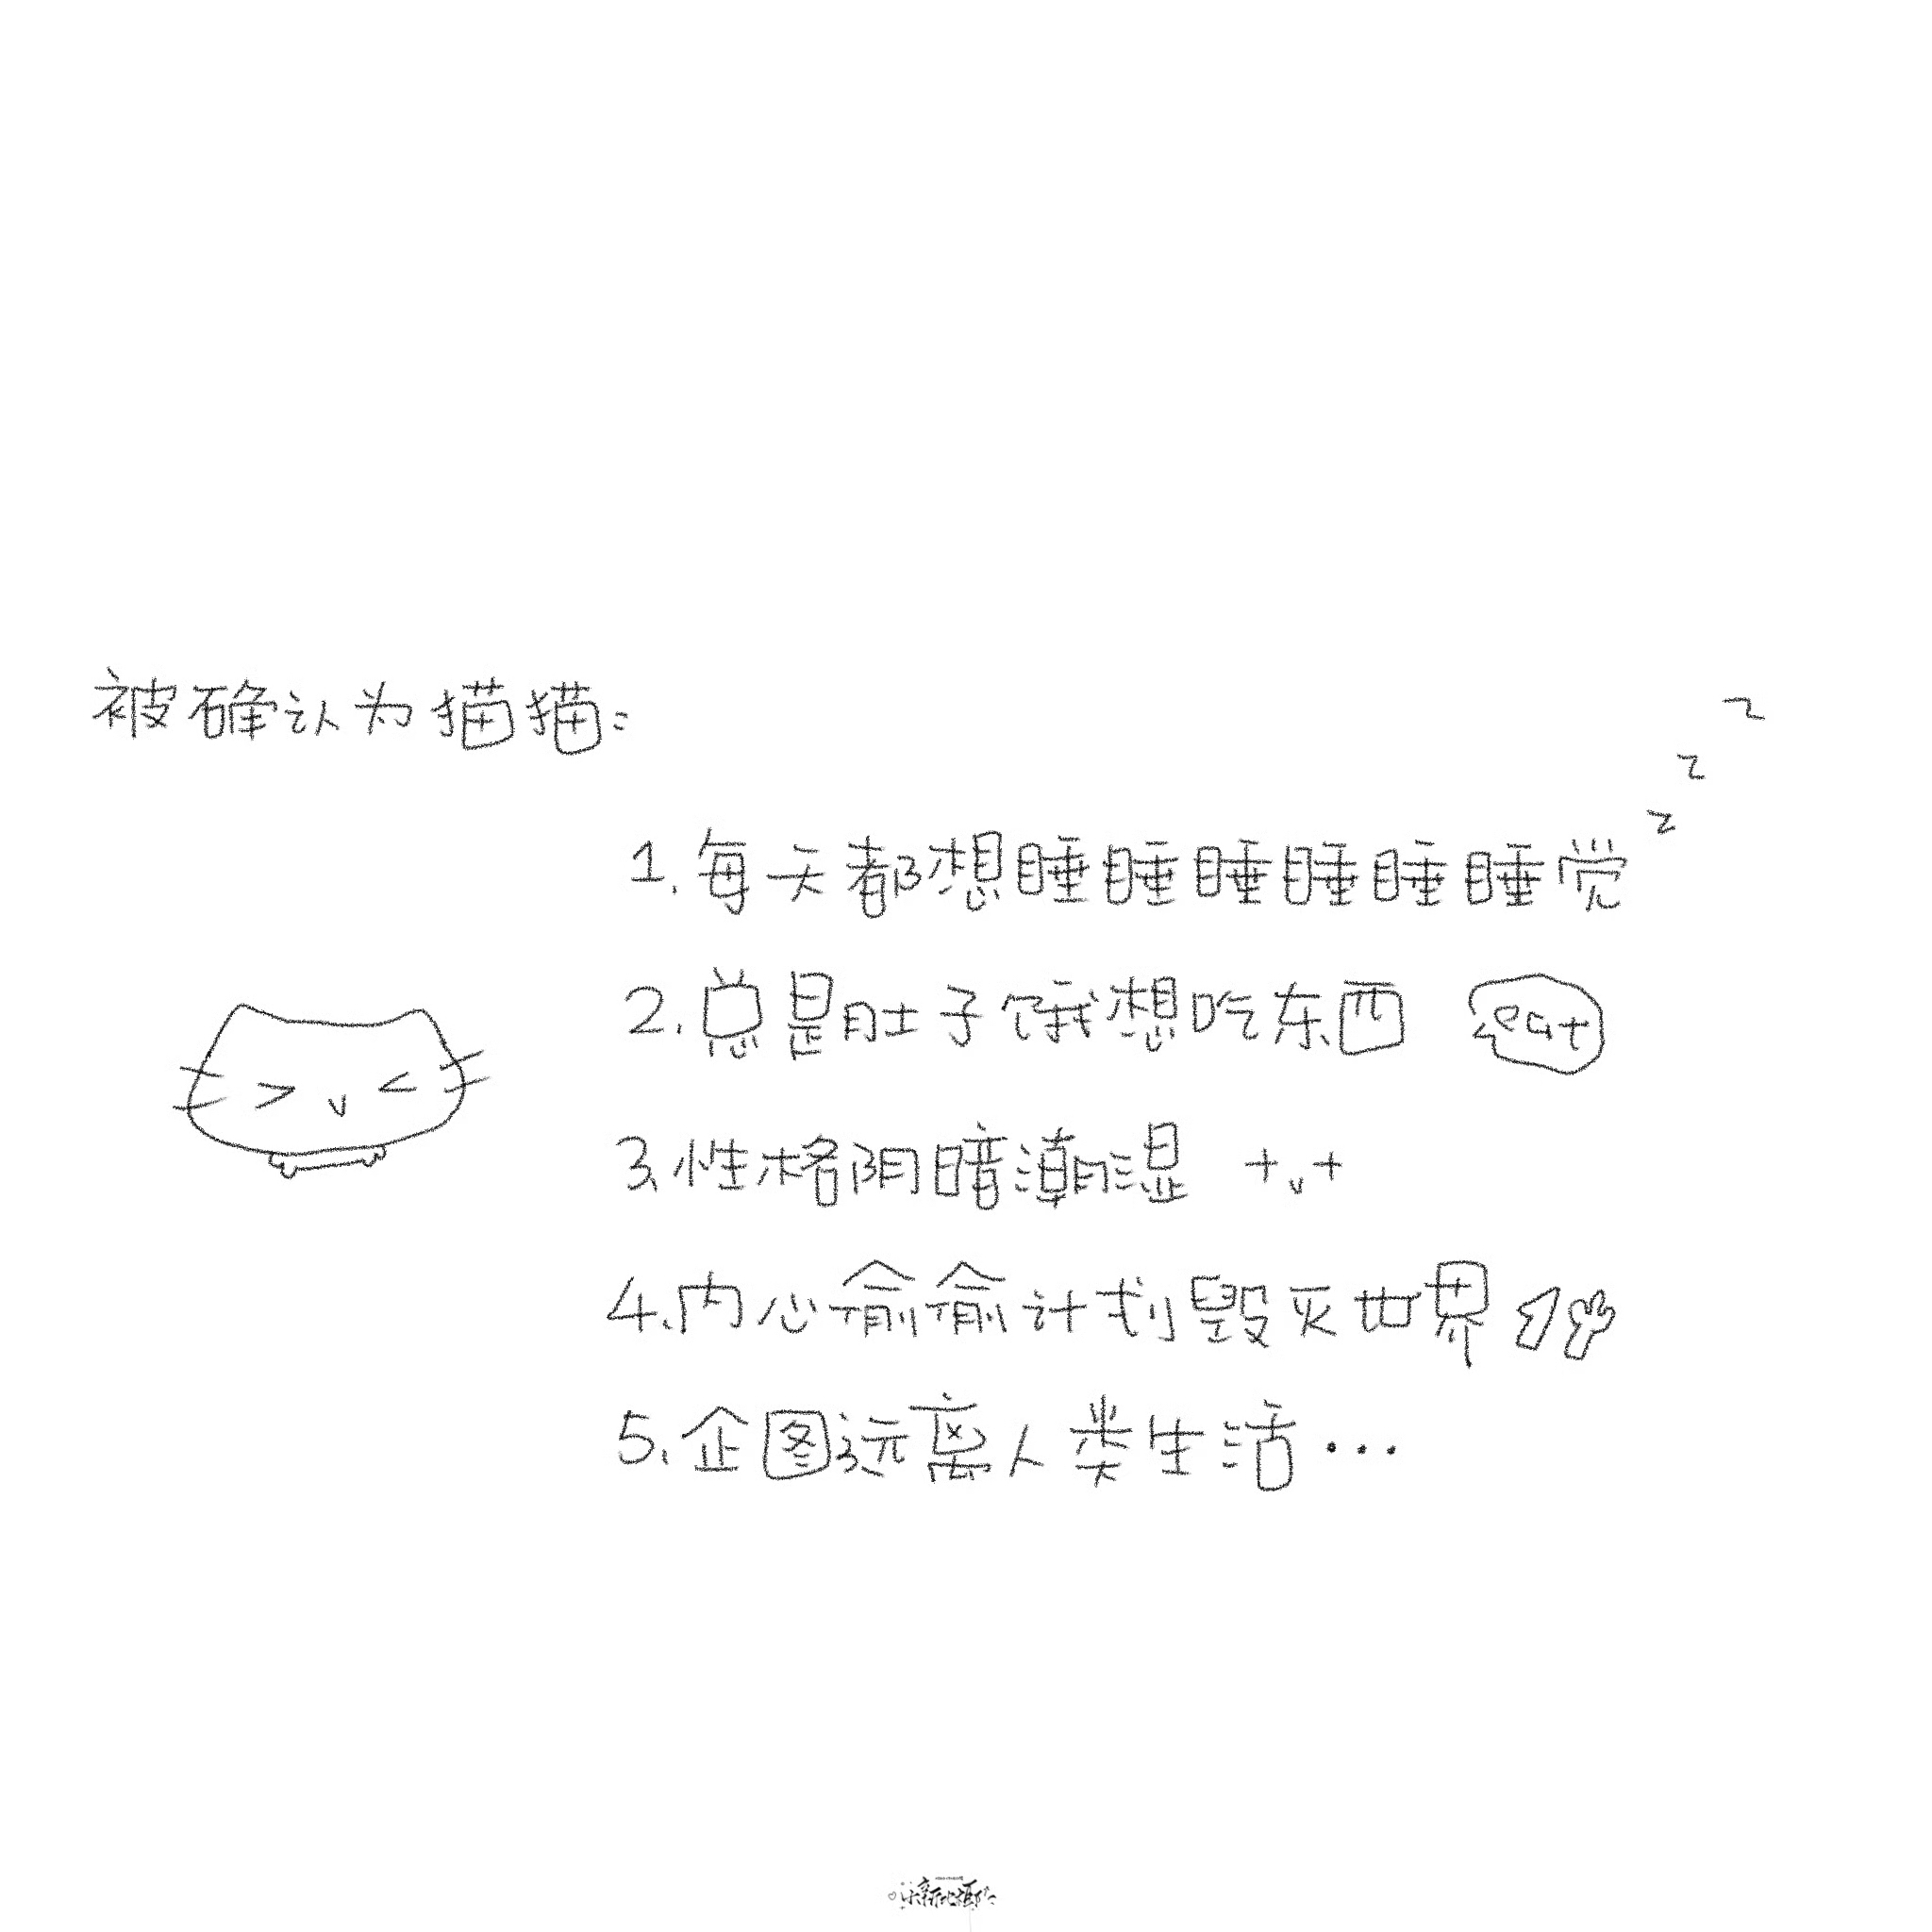 被确认为猫猫:
z
z
z
1.每天都想睡睡睡睡睡睡觉
2.总是肚子饿想吃东西 eat
3.性格阴暗潮湿 +v+
4.内心偷偷计划毁灭世界
5.企图远离人类生活...